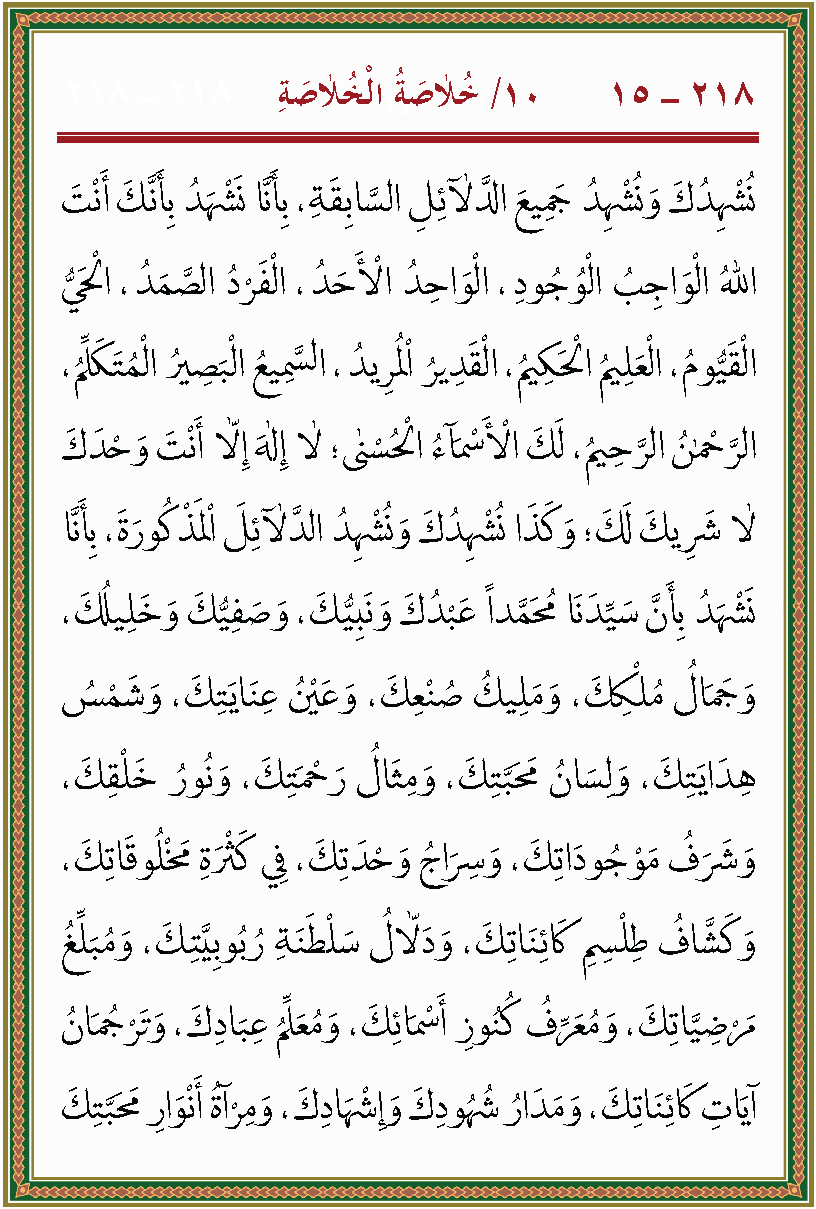 ٢١٨ ــ ١٥ ١٠/ خُلَاصَةُ الْخُلَاصَةِ ٢١٨ ــ ٢١٨
نُشْهِدُكَ وَنُشْهِدُ جَمِيعَ الدَّلَآئِلِ السَّابِقَةِ، بِأَنَّا نَشْهَدُ بِأَنَّكَ أَنْتَ
اللهُ الْوَاجِبُ الْوُجُودِ ، الْوَاحِدُ الْأَحَدُ ، الْفَرْدُ الصَّمَدُ ، الْحَيُّ
الْقَيُّومُ، الْعَلِيمُ الْحَكِيمُ، الْقَدِيرُ الْمُرِيدُ ، السَّمِيعُ الْبَصِيرُ الْمُتَكَلِّمُ،
الرَّحْمٰنُ الرَّحِيمُ، لَكَ الْأَسْمَآءُ الْحُسْنٰى؛ لَا إِلٰهَ إِلَّا أَنْتَ وَحْدَكَ
لَا شَرِيكَ لَكَ؛ وَكَذَا نُشْهِدُكَ وَنُشْهِدُ الدَّلَآئِلَ الْمَذْكُورَةَ، بِأَنَّا
نَشْهَدُ بِأَنَّ سَيِّدَنَا مُحَمَّداً عَبْدُكَ وَنَبِيُّكَ، وَصَفِيُّكَ وَخَلِيلُكَ،
وَجَمَالُ مُلْكِكَ، وَمَلِيكُ صُنْعِكَ، وَعَيْنُ عِنَايَتِكَ، وَشَمْسُ
هِدَايَتِكَ، وَلِسَانُ مَحَبَّتِكَ، وَمِثَالُ رَحْمَتِكَ، وَنُورُ خَلْقِكَ،
وَشَرَفُ مَوْجُودَاتِكَ، وَسِرَاجُ وَحْدَتِكَ، فِي كَثْرَةِ مَخْلُوقَاتِكَ،
وَكَشَّافُ طِلْسِمِ كَائِنَاتِكَ، وَدَلَّالُ سَلْطَنَةِ رُبُوبِيَّتِكَ، وَمُبَلِّغُ
مَرْضِيَّاتِكَ، وَمُعَرِّفُ كُنُوزِ أَسْمَائِكَ، وَمُعَلِّمُ عِبَادِكَ، وَتَرْجُمَانُ
آيَاتِ كَائِنَاتِكَ، وَمَدَارُ شُهُودِكَ وَإِشْهَادِكَ، وَمِرْآةُ أَنْوَارِ مَحَبَّتِكَ